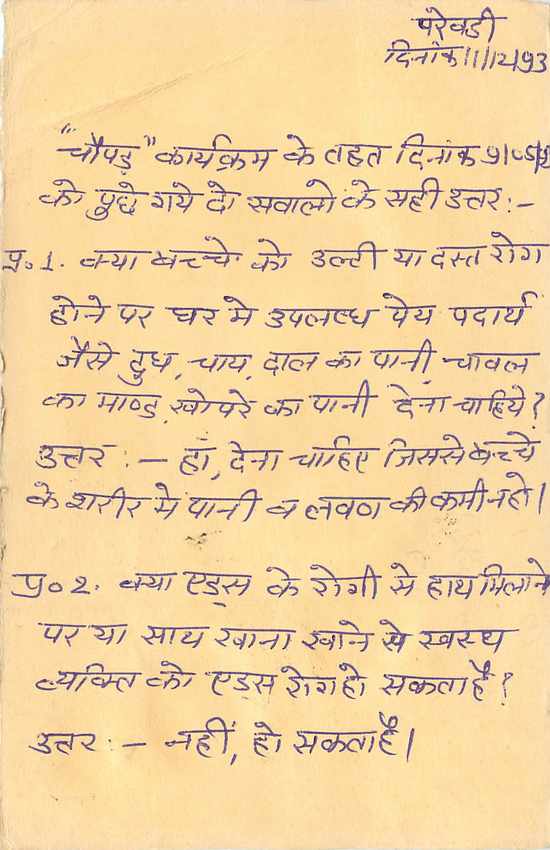 परेवडी
दिनांक 11/12/93
"चौपड़" कार्यक्रम के तहत दिनांक
को पुछे गये दो सवालो के सही उत्तर :-
प्र॰ 1. क्या बच्चे को उल्टी या दस्त रोग
होने पर घर मे उपलब्ध पेय पदार्थ
जैसे दुध, चाय, दाल का पानी, चावल
का माण्ड, खोपरे का पानी देना चाहिये?
उत्तर :- हाँ, देना चाहिए जिससे बच्चे
के शरीर मे पानी व लवण की कमी न हो।
प्र॰ 2. क्या एड्स के रोगी से हाथ मिलाने
पर या साथ खाना खाने से स्वस्थ
व्यक्ति को एड्स रोग हो सकता है?
उत्तर :- नहीं, हो सकता है।